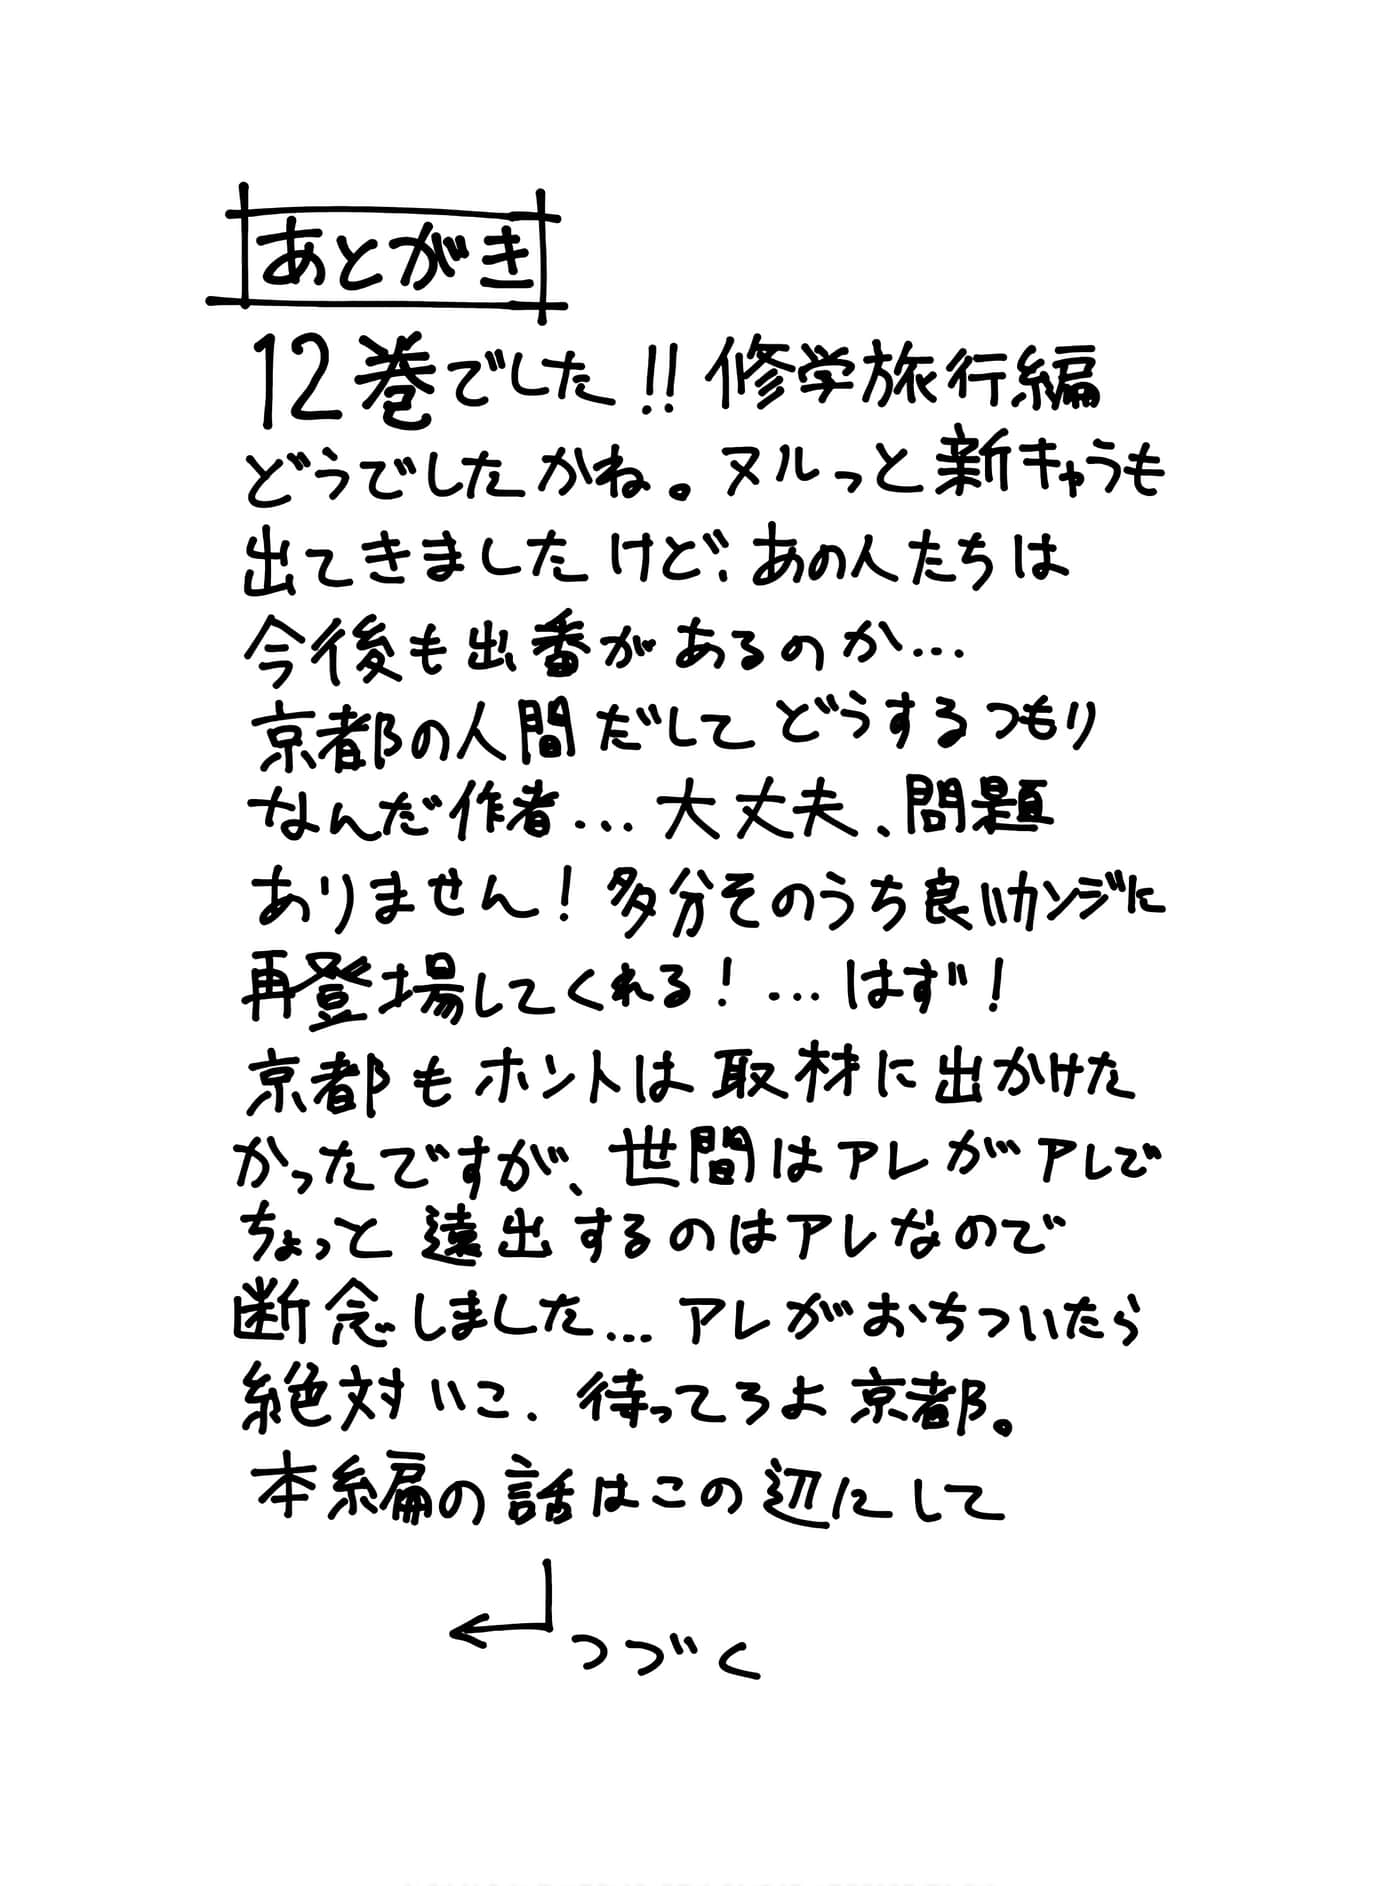 あとがき
12巻でした!!修学旅行編
どうでしたかね。ヌルっと新キャラも
出てきましたけど、あの人たちは
今後も出番があるのか…
京都の人間だしてどうするつもり
なんだ作者…大丈夫、問題
ありません!多分そのうち良いカンジに
再登場してくれる!…はず!
京都もホントは取材に出かけた
かったですが、世間はアレがアレで
ちょっと遠出するのはアレなので
断念しました…アレがおちついたら
絶対いこ、待ってろよ京都。
本編の話はこの辺にして
つづく